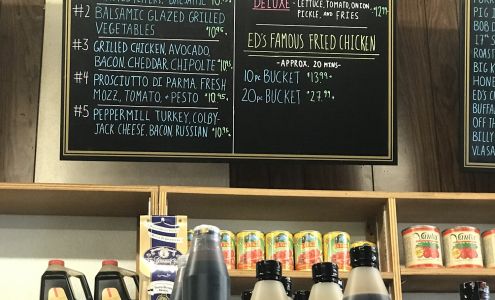 #2 BALSAMIC GLAZED GRILLED
VEGETABLES $10.95
#3 GRILLED CHICKEN, AVOCADO,
BACON, CHEDDAR, CHIPOLTE
#4 PROSCIUTTO DI PARMA, FRESH
MOZZ, TOMATO, + PESTO $10.95
#5 PEPPERMILL TURKEY, COLBY-
JACK CHEESE, BACON, RUSSIAN $10.95
DELUXE - LETTUCE, TOMATO, ONION,
PICKLE, AND FRIES
ED'S FAMOUS FRIED CHICKEN
-APPROX. 20 MINS-
10 PC BUCKET $13.99
20 PC BUCKET $27.99
PIG
BOB
17th
ROAST
BIG
HONE
ED'S
BUFFA
OFF T
BILLY
VLASA